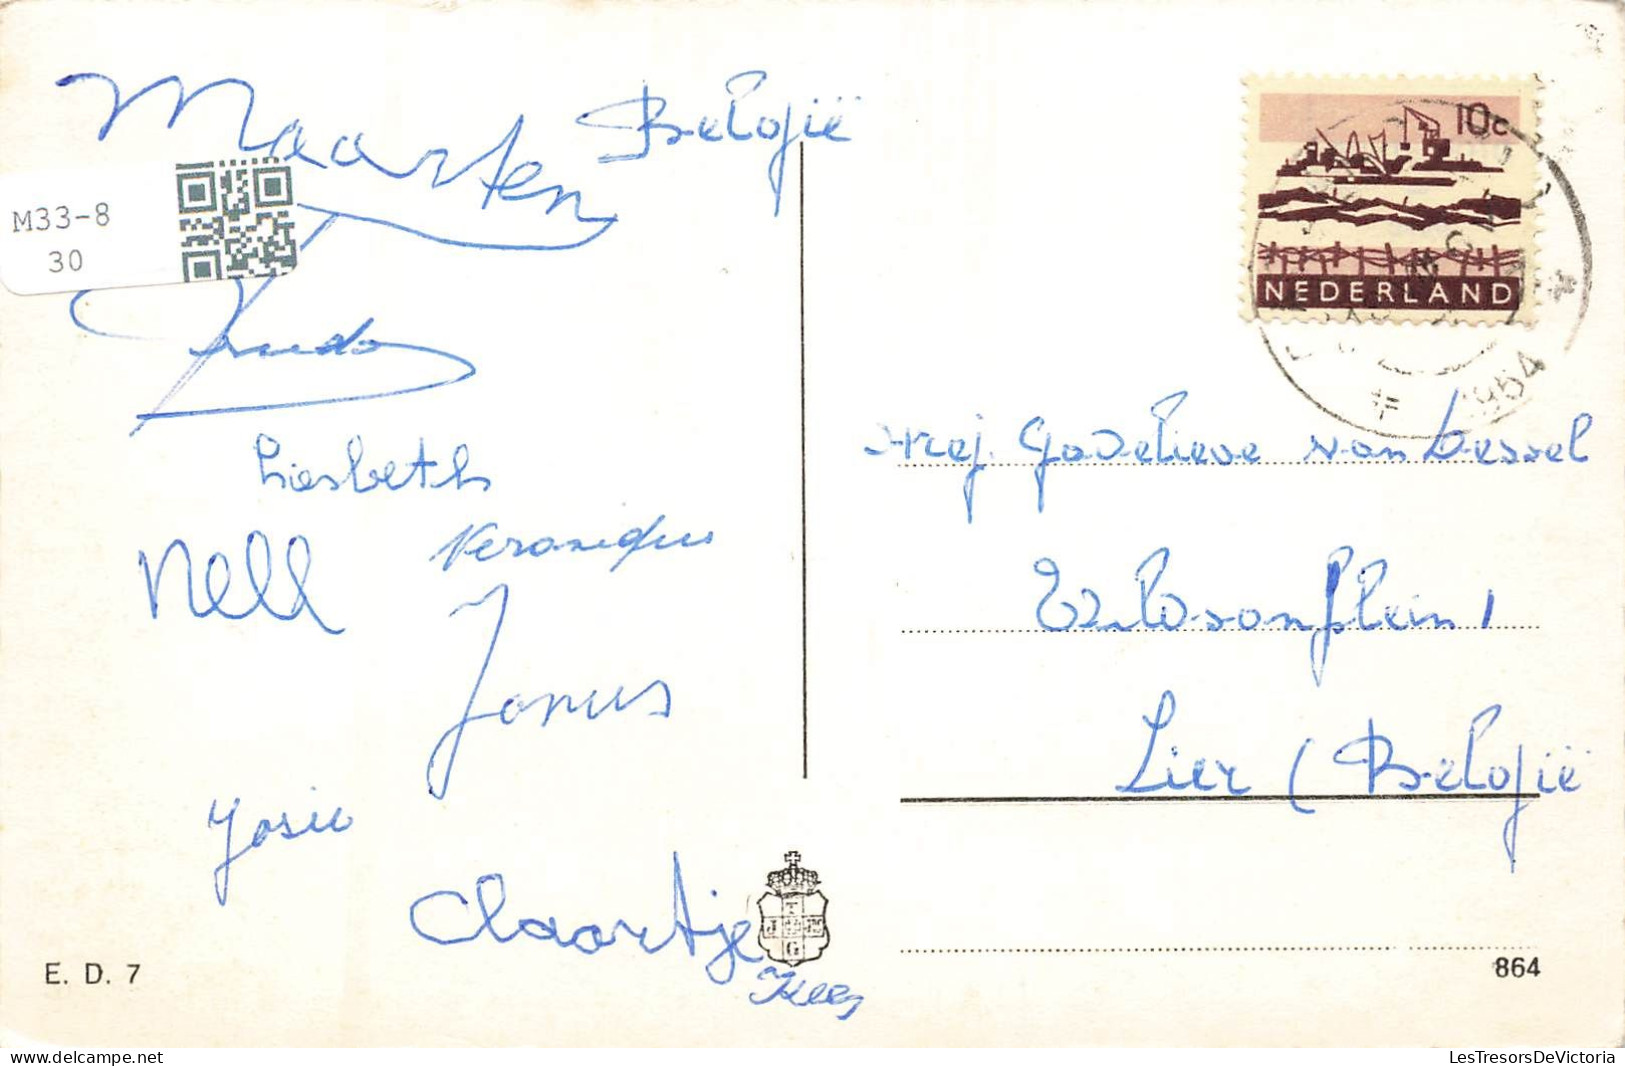 Maarten
België
M33-8
30
Liesbeth
Nell
Veronique
Janus
Josie
Claartje
Kees
E. D. 7
10c
NEDERLAND
1964
Mej. Godelieve van Dessel
Wilsonplein 1
Lier (België
T
J M
G
864
www.delcampe.net
LesTresorsDeVictoria